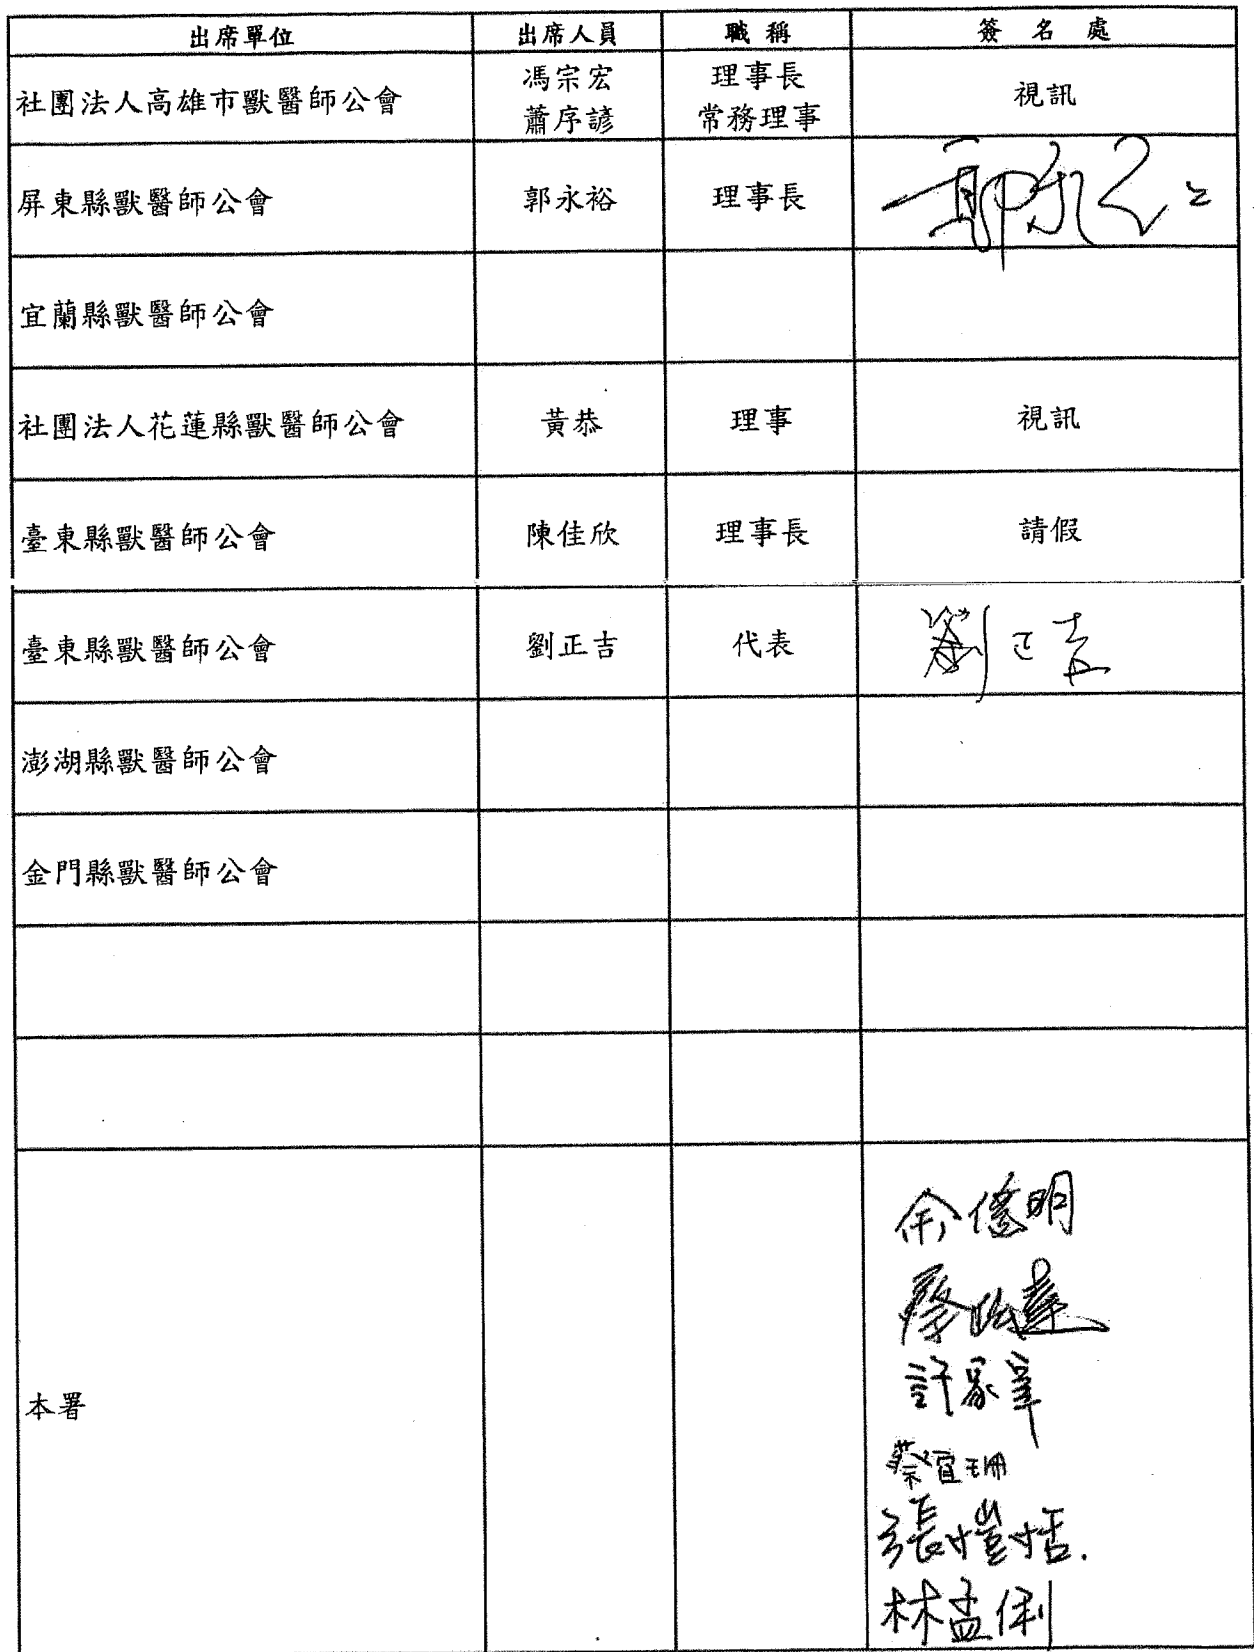 出席單位 出席人員 職稱 簽名處
社團法人高雄市獸醫師公會 馮宗宏 理事長 視訊
蕭序諺 常務理事
屏東縣獸醫師公會 郭永裕 理事長
宜蘭縣獸醫師公會
社團法人花蓮縣獸醫師公會 黃恭 理事 視訊
臺東縣獸醫師公會 陳佳欣 理事長 請假
臺東縣獸醫師公會 劉正吉 代表 劉正吉
澎湖縣獸醫師公會
金門縣獸醫師公會
本署
許家
蔡宜珊
張愷恬
林孟俐